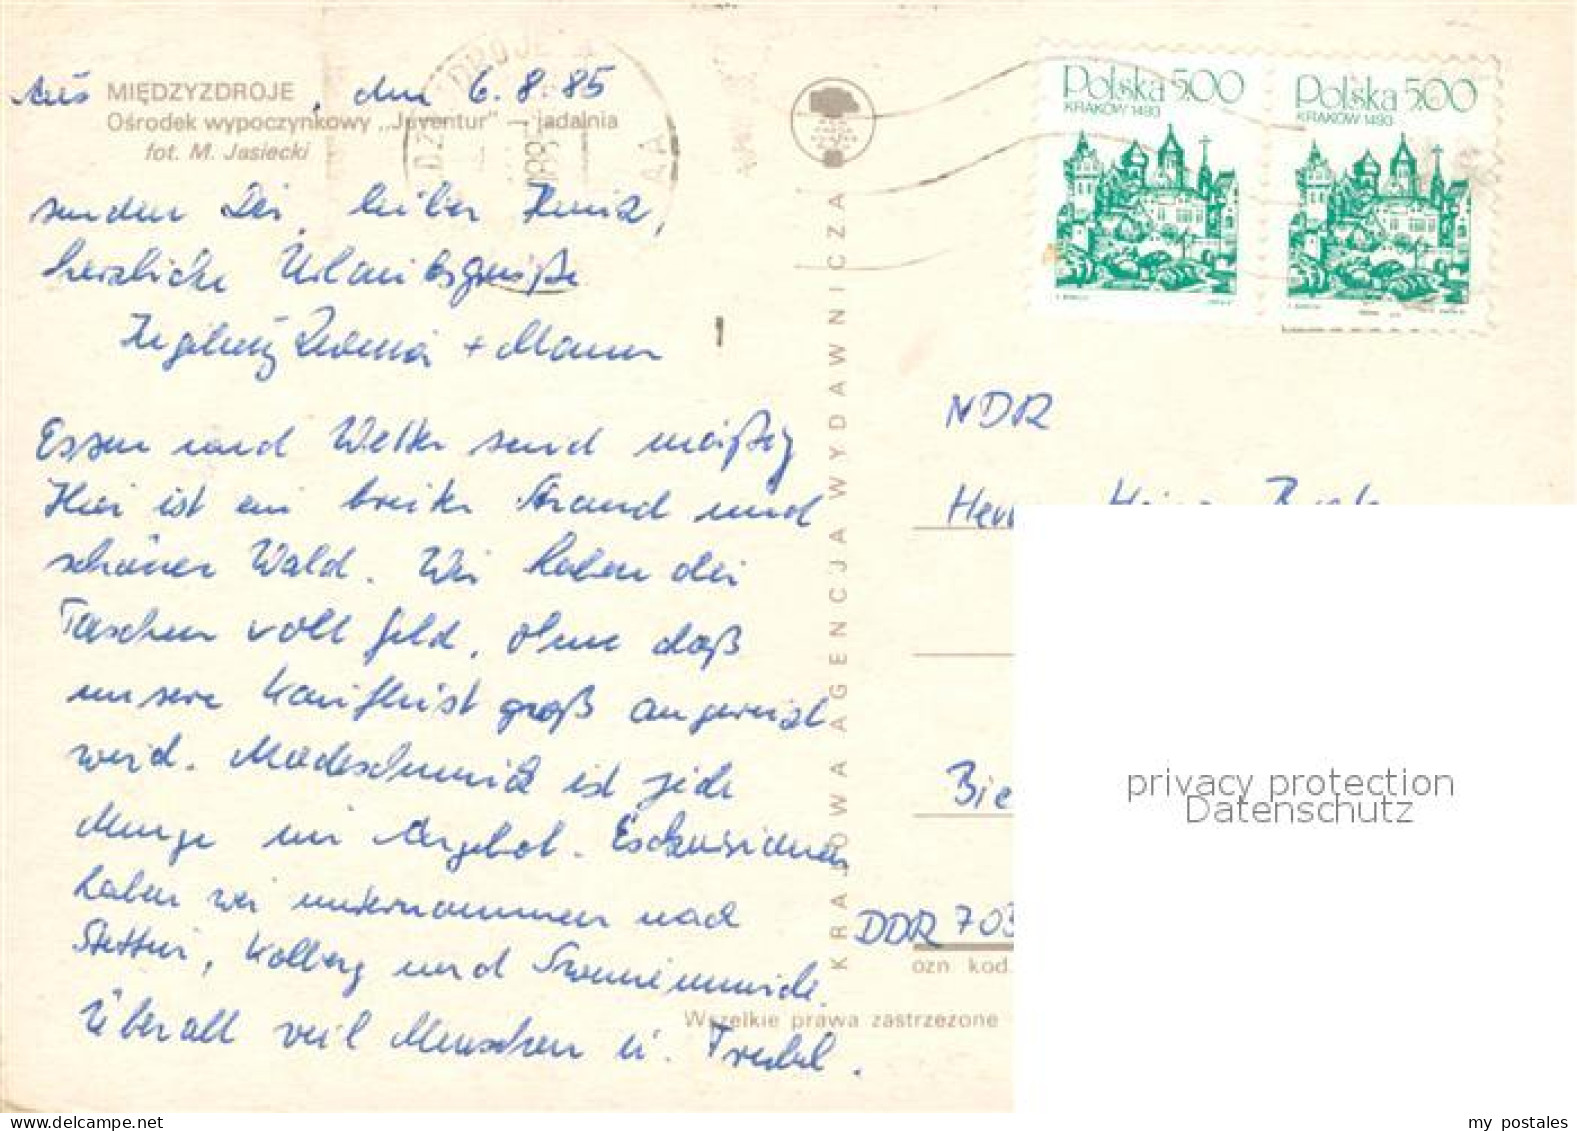 Aus MIĘDZYZDROJE, den 6.8.85
Ośrodek wypoczynkowy „Juventur" — jadalnia
fot. M. Jasiecki
senden Dir, lieber Heinz,
herzliche Urlaubsgrüße
+ Mann
Essen und Wetter sind mäßig
Hier ist ein breiter Strand und
schöner Wald. Wir haben die
Taschen voll Geld, ohne daß
unsere Kauflust groß angereizt
wird. Modeschmuck ist jede
Menge im Angebot. Exkursionen
haben wir unternommen nach
Stettin, Kolberg und Swinemünde.
Überall viel Menschen u. Trubel.
KRAJOWA AGENCJA WYDAWNICZA
Polska 5.00
KRAKÓW 1493
Polska 5.00
KRAKÓW 1493
NDR
Herrn Heinz
Bie
DDR 703
ozn kod.
Wszelkie prawa zastrzeżone
privacy protection
Datenschutz
my postales